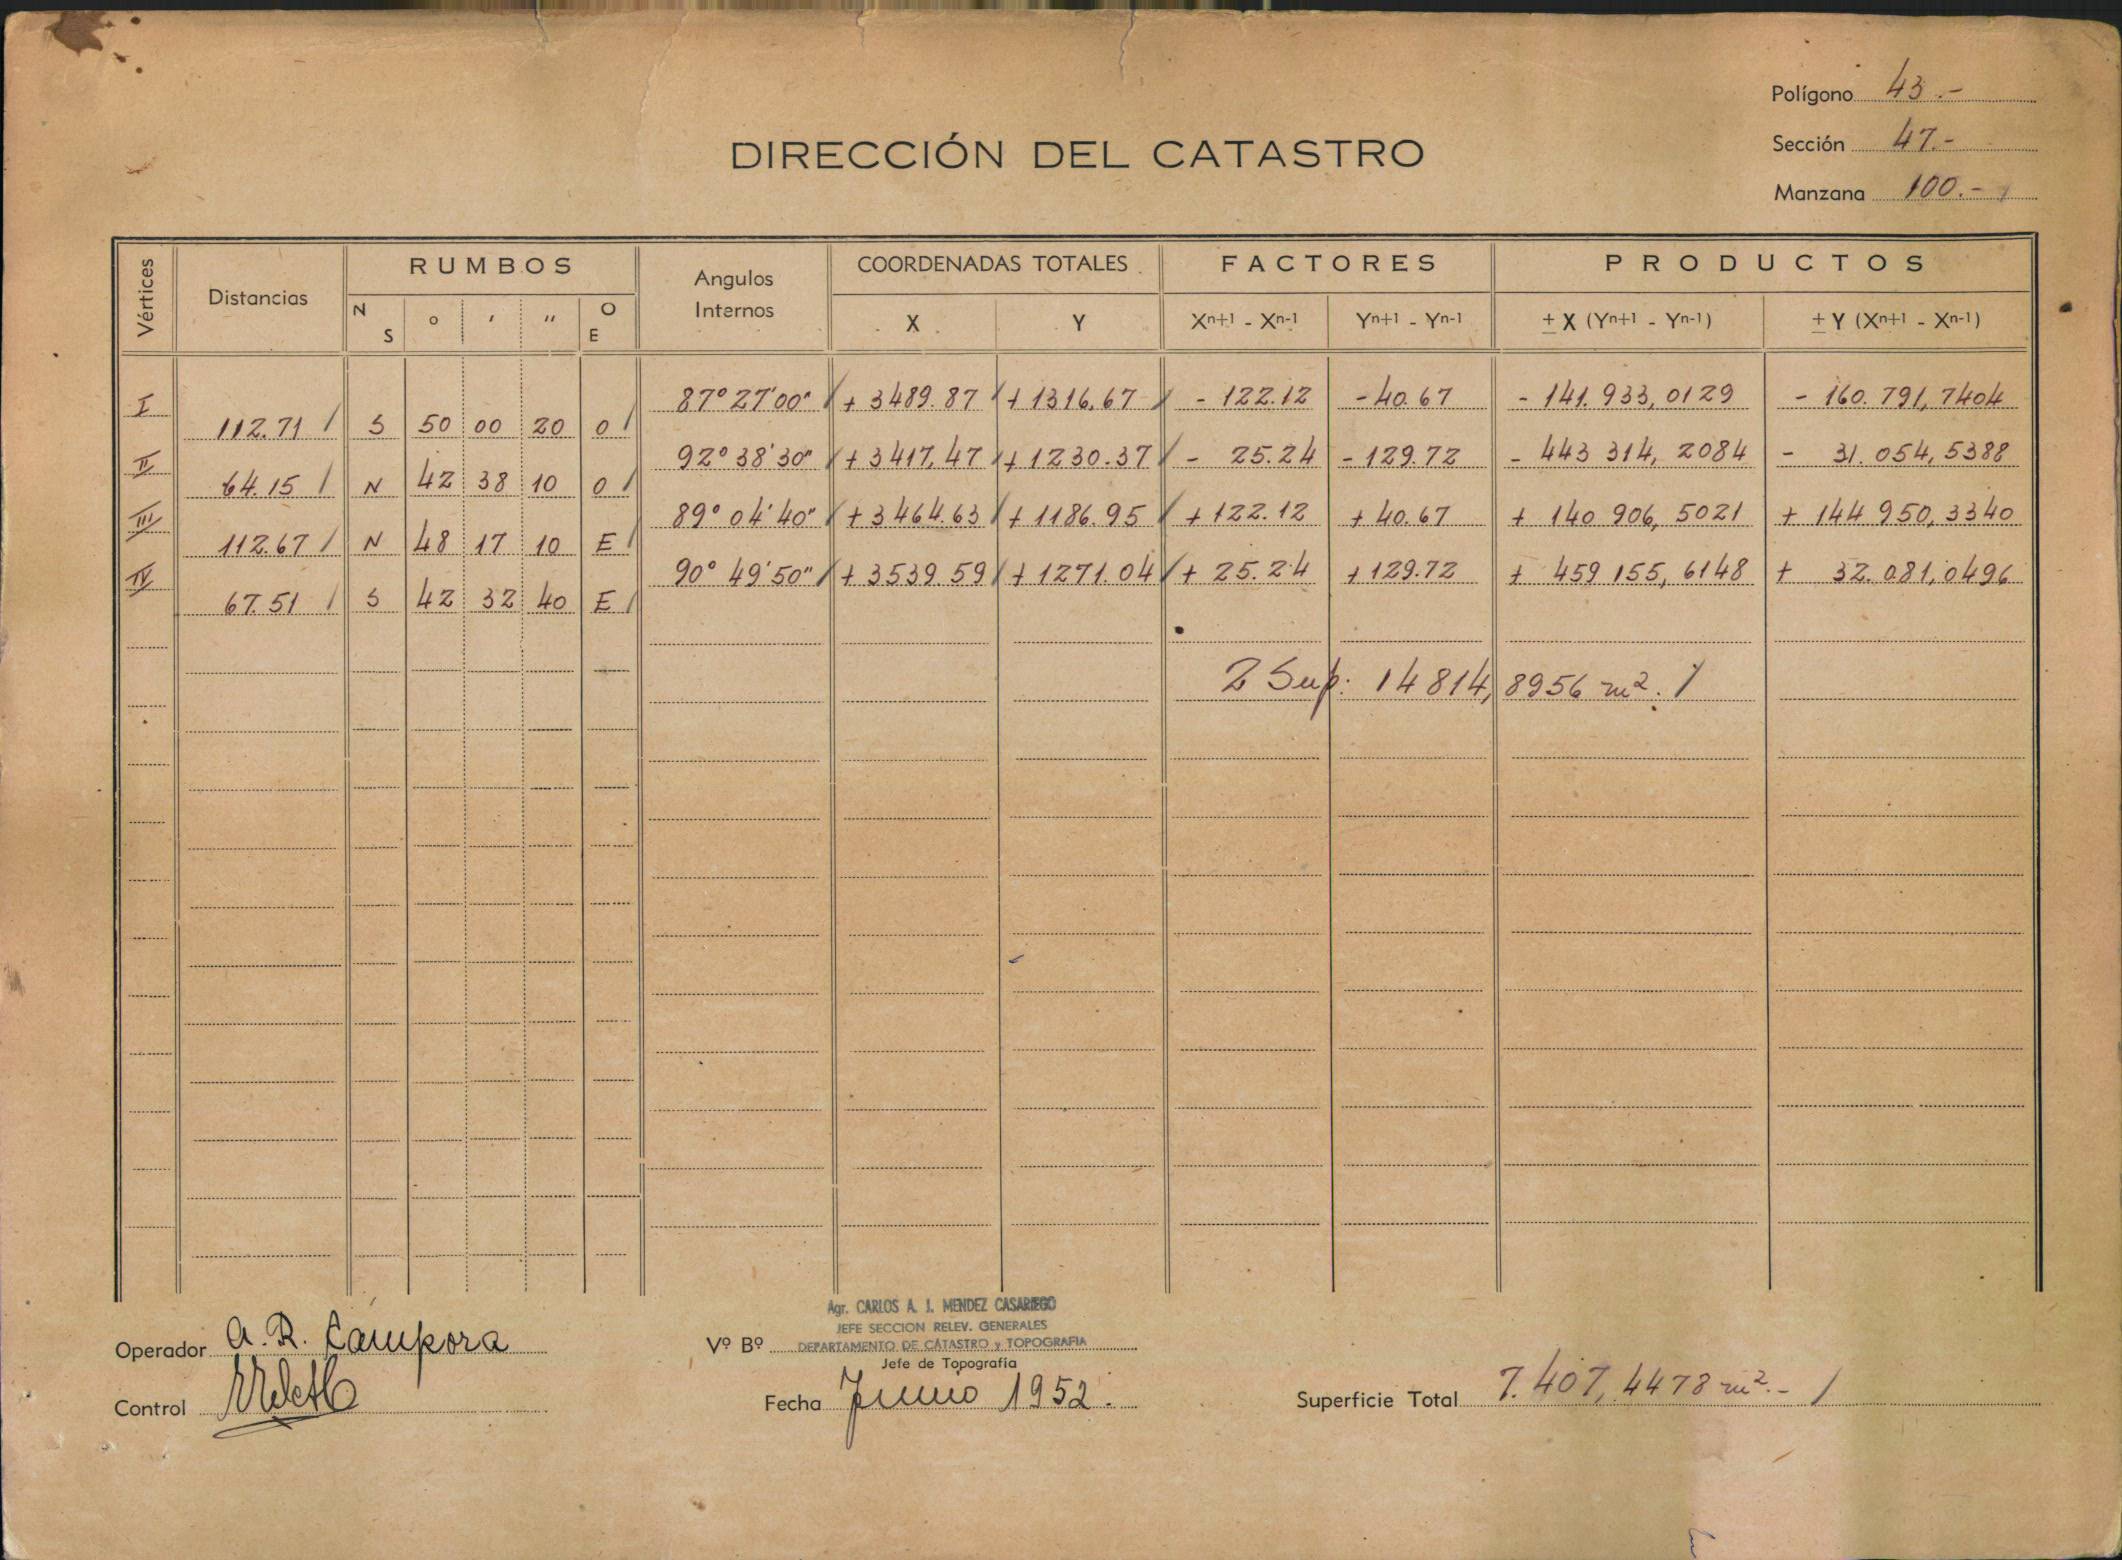 Polígono 43.-
DIRECCIÓN DEL CATASTRO
Sección 47.-
Manzana 100.-
Vértices Distancias RUMBOS Angulos Internos COORDENADAS TOTALES FACTORES PRODUCTOS
N S ° ' " O E X Y Xn+1 - Xn-1 Yn+1 - Yn-1 ± X (Yn+1 - Yn-1) ± Y (Xn+1 - Xn-1)
I 87° 27' 00" + 3489.87 + 1316.67 - 122.12 - 40.67 - 141.933,0129 - 160.791,7404
112.71 S 50 00 20 O
II 92° 38' 30" + 3417,47 + 1230.37 - 25.24 - 129.72 - 443 314,2084 - 31.054,5388
64.15 N 42 38 10 O
III 89° 04' 40" + 3464.63 + 1186.95 + 122.12 + 40.67 + 140 906,5021 + 144 950,3340
112.67 N 48 17 10 E
IV 90° 49' 50" + 3539 59 + 1271.04 + 25.24 + 129.72 + 459 155,6148 + 32.081,0496
67.51 S 42 32 40 E
2 Sup: 14814,8956 m².
Agr. CARLOS A. J. MENDEZ CASARIEGO
JEFE SECCION RELEV. GENERALES
Operador A. R. Campora Vº Bº DEPARTAMENTO DE CATASTRO y TOPOGRAFIA
Jefe de Topografía
Control Fecha Junio 1952. Superficie Total 7.407,4478 m².-